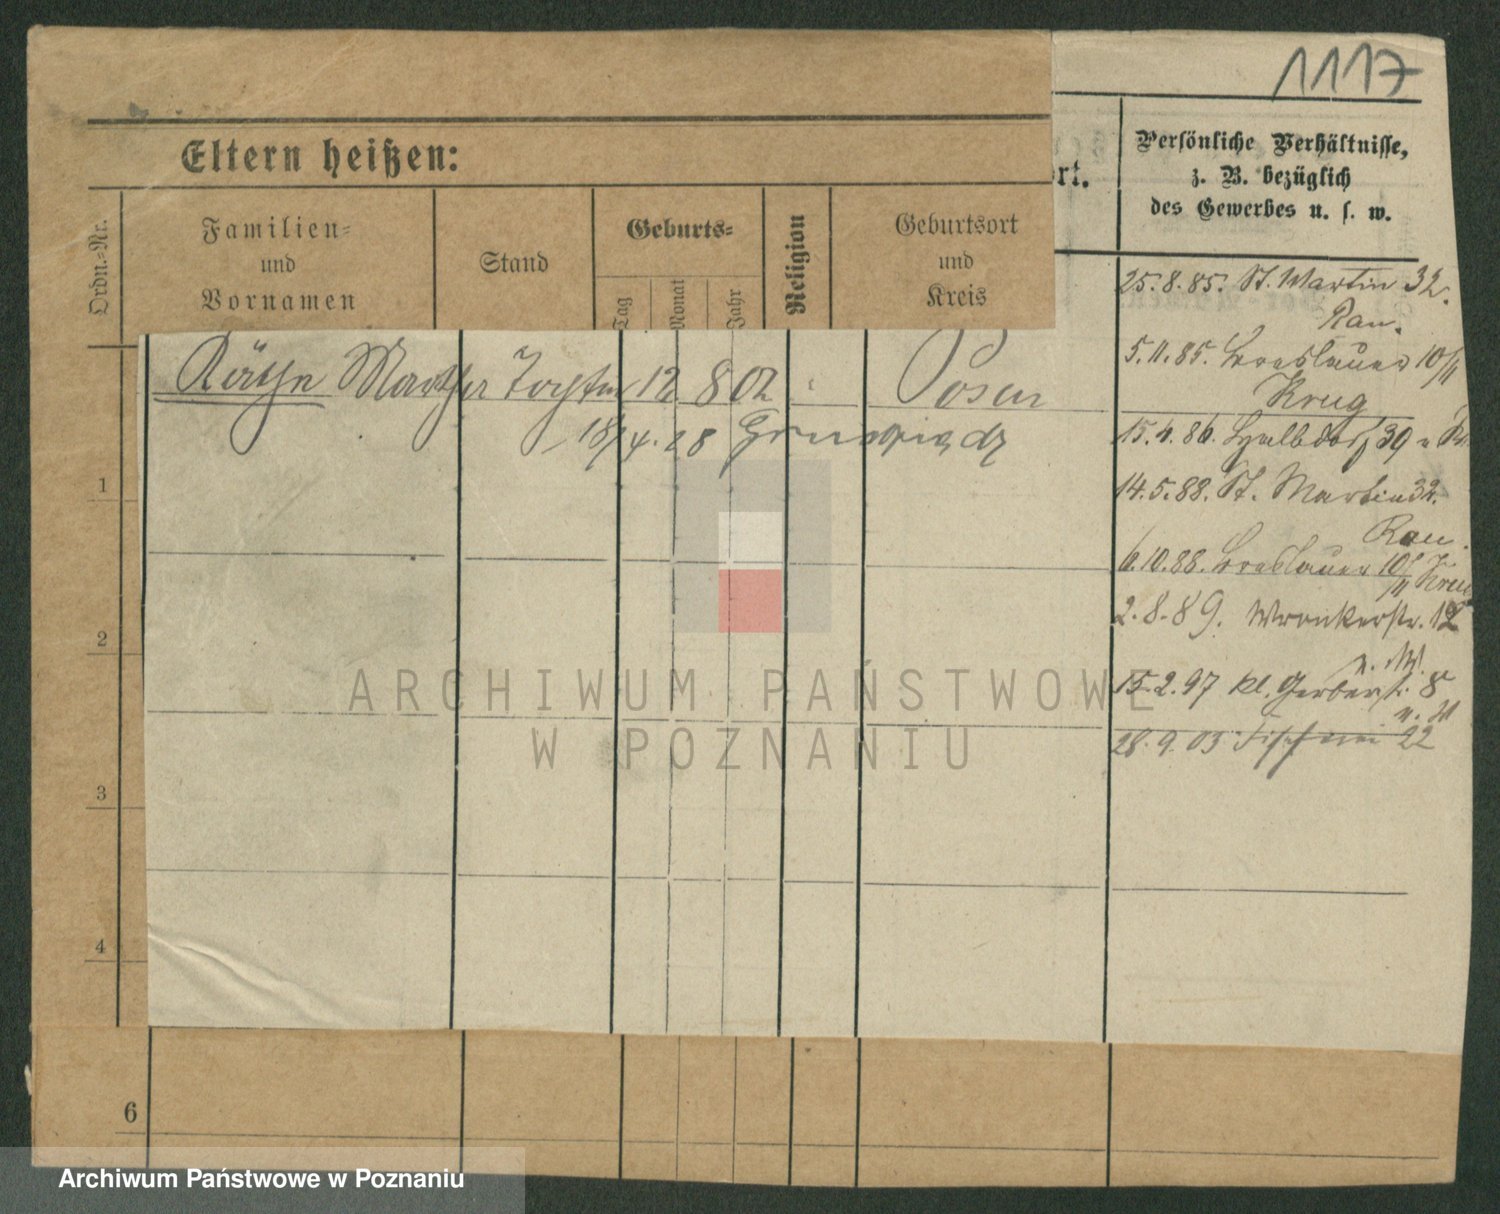 1117
Eltern heißen:
Ordn.-Nr.
Familien-
und
Vornamen
Stand
Geburts-
Tag
Monat
Jahr
Religion
Geburtsort
und
Kreis
ort.
Persönliche Verhältnisse,
z. B. bezüglich
des Gewerbes u. s. w.
Käthe Martha Tochter 12 8 02 Posen
18/4. 28
25.8.85. St. Martin 32.
Rau.
5.11.85. Breslauer 10/11
Krug
15.4.86. Halbdorf 39
14.5.88. St. Martin 32.
Rau.
6.10.88. Breslauer 10/11 Krug
2.8.89. Wronkerstr. 12
15.2.97 kl. Gerberstr. 8
28.9.03 Fischerei 22
1
2
3
4
6
ARCHIWUM PAŃSTWOWE
W POZNANIU
Archiwum Państwowe w Poznaniu